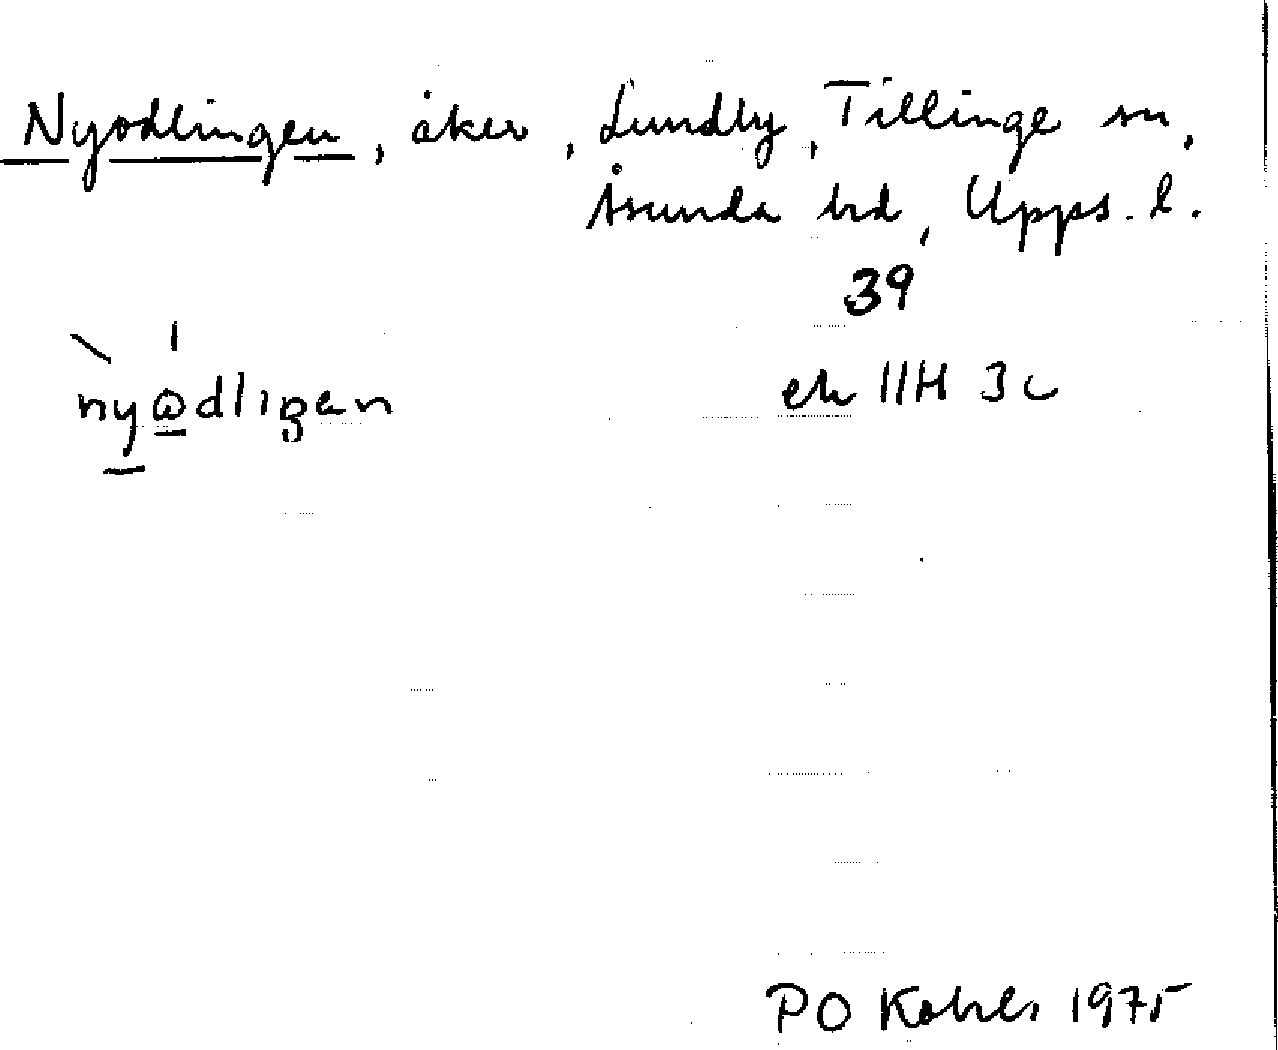 Nyodlingen, åker, Lundby, Tillinge sn,
Åsunda hd, Upps. l.
39
nyωdlıgen
ek 11H 3c
PO Kahl. 1975